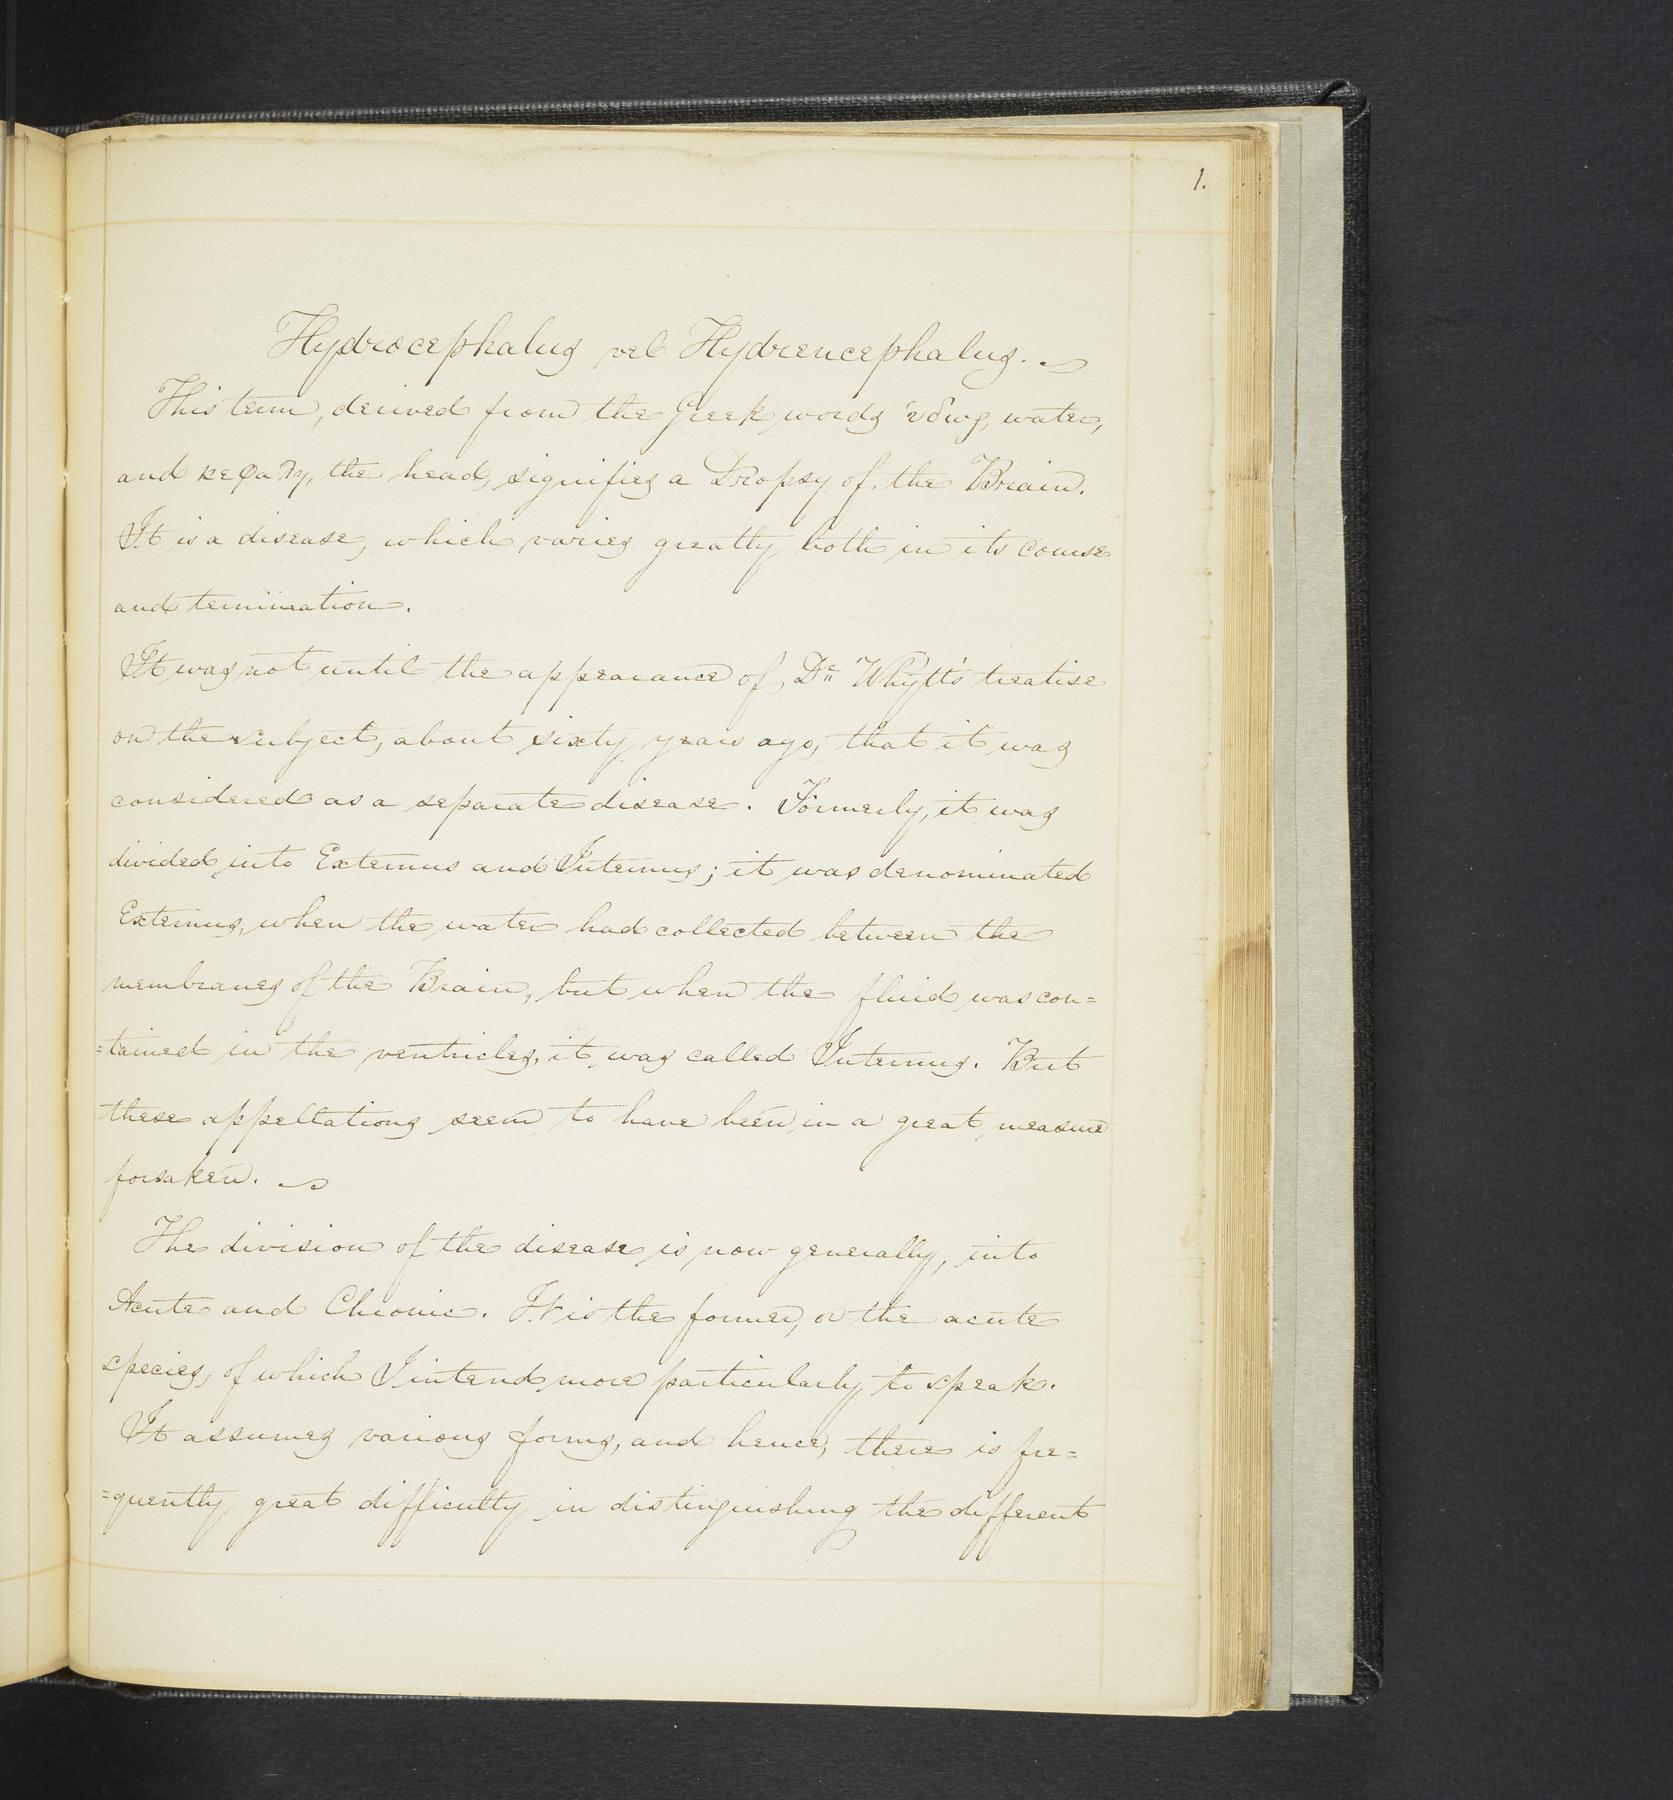 1.
Hydrocephalus vel Hydrencephalus.
This term, derived from the Greek words ὑδως, water,
and κεφαλη, the head, signifies a Dropsy of the Brain.
It is a disease, which varies greatly both in its course
and termination.
It was not until the appearance of Dr. Whytt's treatise
on the subject, about sixty years ago, that it was
considered as a separate disease. Formerly, it was
divided into Externus and Internus; it was denominated
Externus, when the water had collected between the
membranes of the Brain, but when the fluid was con=
=tained in the ventricles, it was called Internus. But
these appellations seem to have been in a great measure
forsaken.
The division of the disease is now generally, into
Acute and Chronic. It is the former, or the acute
species, of which I intend more particularly to speak.
It assumes various forms, and hence, there is fre=
=quently great difficulty in distinguishing the different